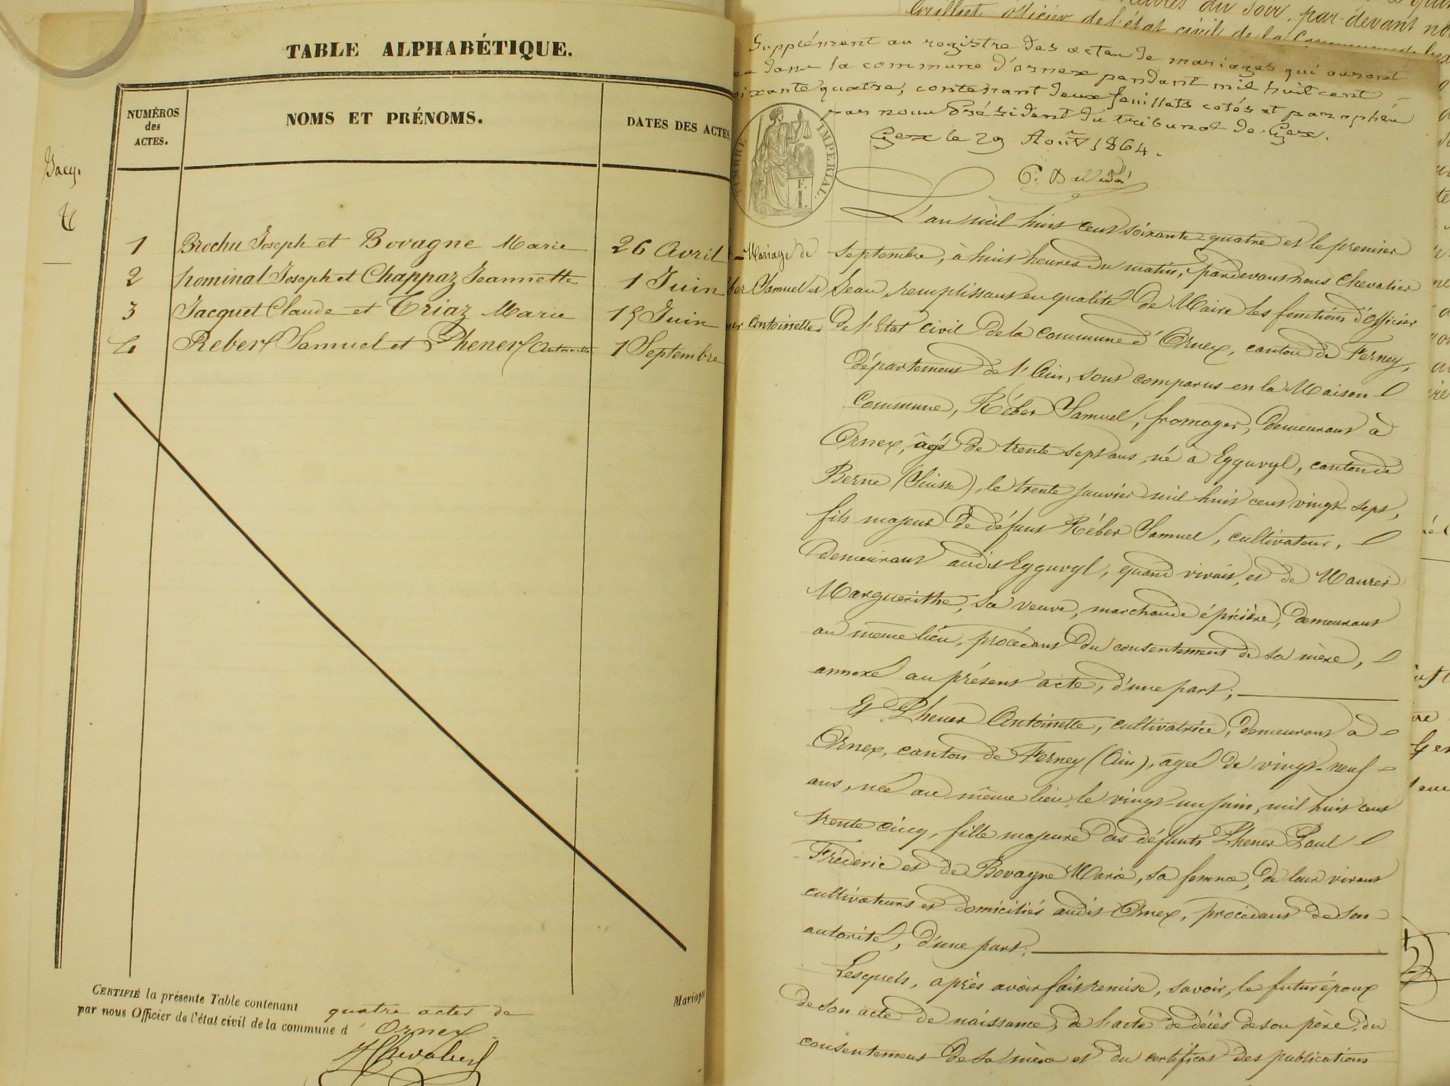 TABLE ALPHABÉTIQUE.
NUMÉROS
des
ACTES.
NOMS ET PRÉNOMS.
DATES DES ACTES
1 Brochu Joseph et Bovagne Marie 26 Avril
2 Nominal Joseph et Chappaz Jeannette 1 Juin
3 Jacquet Claude et Triaz Marie 15 Juin
4 Reber Samuel et Phener Antoinette 1 Septembre
CERTIFIÉ la présente Table contenant quatre actes de
par nous Officier de l'état civil de la commune d'Ornex
Chevalier
Mariage
Supplément au registre des actes de mariages qui auront
dans la commune d'ornex pendant mil huit cent
soixante quatre, contenant deux feuillets cotés et paraphés
par nous Président du tribunal de Gex.
Gex le 29 Août 1864.
TIMBRE IMPÉRIAL
Mariage de
Samuel et
Antoinette
L'an mil huit cent soixante quatre et le premier
Septembre, à huit heures du matin, pardevant nous Chevalier
Jean, remplissant en qualité de Maire les fonctions d'Officier
de l'Etat Civil de la commune d'Ornex, canton de Ferney,
département de l'Ain, sont comparus en la Maison
Commune, Réber Samuel, fromager, demeurant à
Ornex, âgé de trente sept ans, né à Egguvyl, canton de
Berne (Suisse), le trente Janvier mil huit cent vingt sept,
fils majeur de défunt Réber Samuel, cultivateur,
demeurant audit Egguvyl, quand vivait, et de Maurer
Marguerithe, sa veuve, marchande épicière, demeurant
au même lieu, procédant du consentement de sa mère,
annexé au présent acte, d'une part,
Et Phener Antoinette, cultivatrice, demeurant à
Ornex, canton de Ferney (Ain), âgée de vingt-neuf
ans, née au même lieu le vingt-un juin, mil huit cent
trente cinq, fille majeure des défunts Phener Paul
Fréderic et de Bovagne Marie, sa femme, de leur vivant
cultivateurs et domiciliés audit Ornex, procédant de son
autorité, d'une part.
Lesquels, après avoir fait remise, savoir, le futur époux
de son acte de naissance, de l'acte de décès de son père, du
consentement de sa mère et du certificat des publications